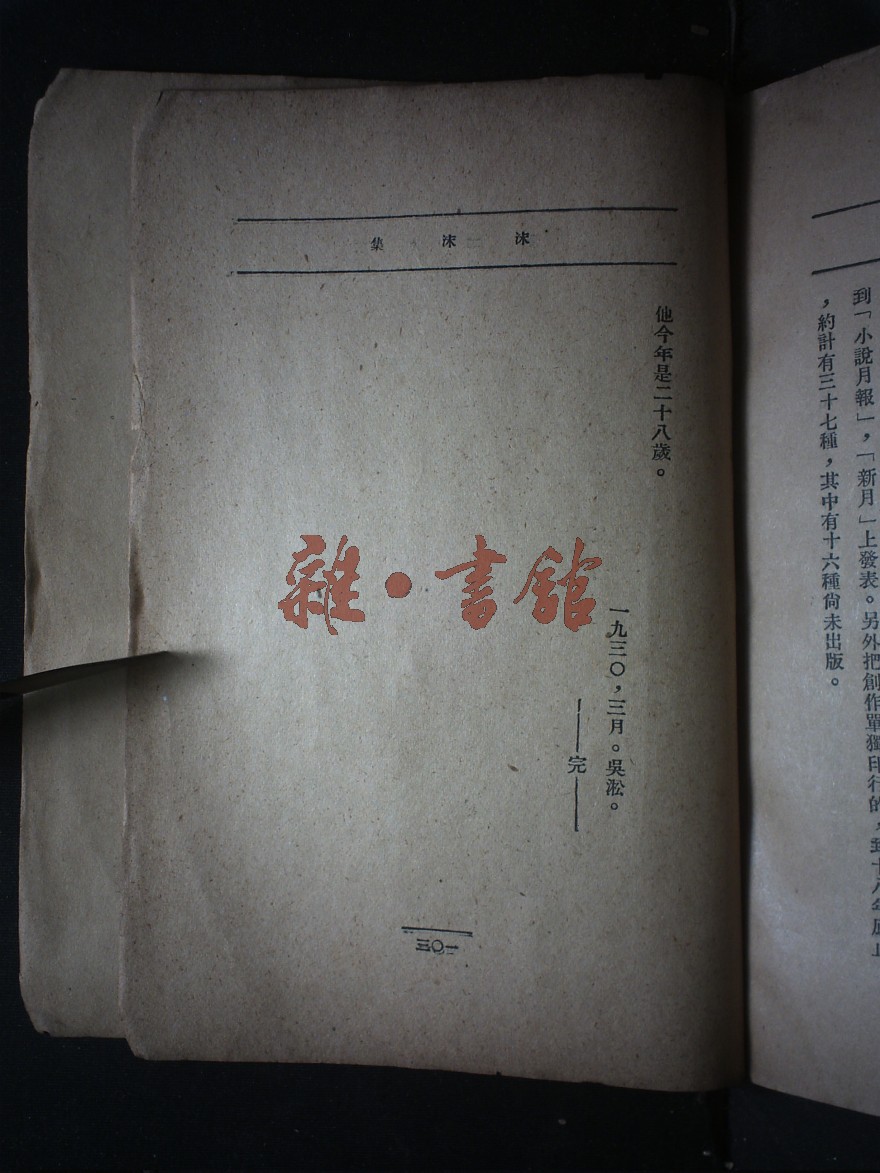 到「小說月報」，「新月」上發表。另外把創作單獨印行的，到十八年底止
，約計有三十七種，其中有十六種尚未出版。
沫沫集
他今年是二十八歲。
一九三〇，三月。吳淞。
——完——
一〇三
雜·書館